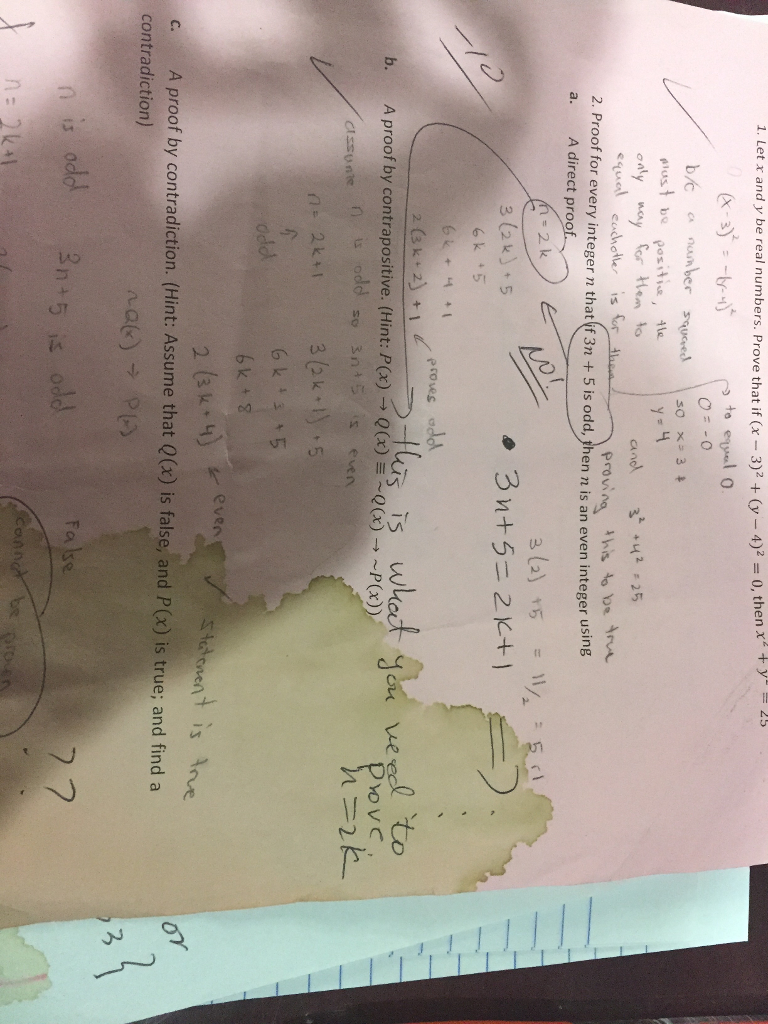 1. Let x and y be real numbers. Prove that if (x − 3)² + (y − 4)² = 0, then x² + y² = 25
(x-3)² = -(y-4)²
→ to equal 0
0 = -0
b/c a number squared
must be positive, the
only way for them to
equal eachother is for them
so x = 3 +
y = 4
and 3² + 4² = 25
proving this to be true
2. Proof for every integer n that if 3n + 5 is odd, then n is an even integer using
a. A direct proof.
n = 2k
No!
3(2k) + 5
6k + 5
6k + 4 + 1
2(3k + 2) + 1 ← proves odd
3(2) + 5 = 11/2 = 5 r1
• 3n + 5 = 2k + 1 ⇒
-10
this is what you need to
prove
n = 2k
b. A proof by contrapositive. (Hint: P(x) → Q(x) ≡ ~Q(x) → ~P(x))
assume n is odd so 3n+5 is even
n = 2k+1
odd
3(2k+1) + 5
6k + 3 + 5
6k + 8
2(3k+4) ← even ✓
statement is true
c. A proof by contradiction. (Hint: Assume that Q(x) is false, and P(x) is true; and find a
contradiction)
~Q(x) → P(x)
n is odd 3n+5 is odd
False
??
n = 2k+1
cannot be proven
or
,3}